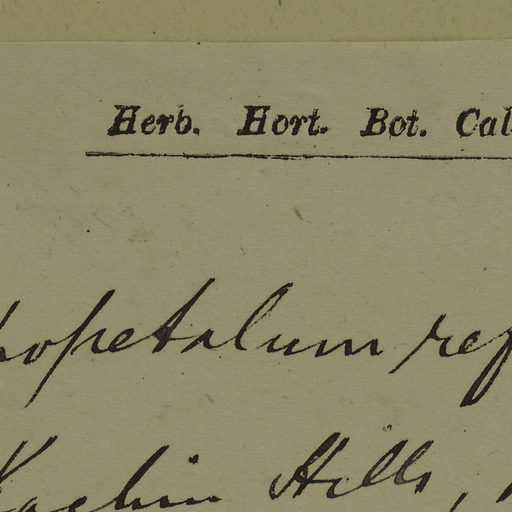 Herb. Hort. Bot. Cal
hopetalum rep
Kachin Hills,